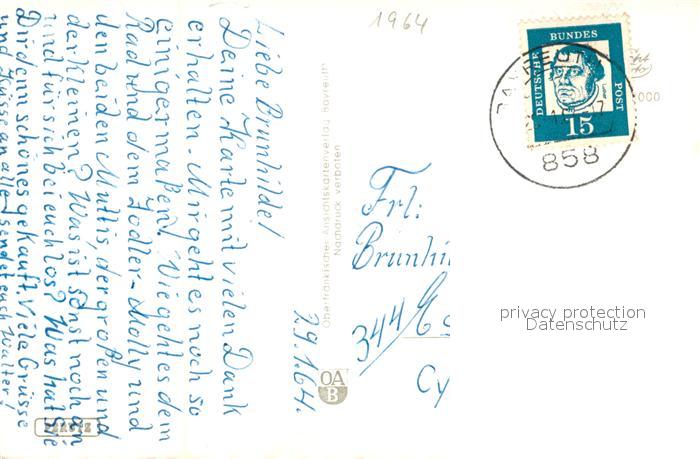 1964
29.1.64.
Liebe Brunhilde!
Deine Karte mit vielen Dank
erhalten. Mir geht es noch so
einigermaßen! Wie geht es dem
Rad und dem Jodler-Molly und
den beiden Muttis, der großen und
der kleinen? Was ist sonst noch an
und für sich bei euch los? Was hat Sie
Dir denn schönes gekauft. Viele Grüsse
und Küsse an alle sendet euch Walter!
Oberfränkischer Ansichtskartenverlag Bayreuth
Nachdruck verboten
OA
B
DEUTSCHE
BUNDES
POST
Luther
15
858
000
Frl.
Brunhi
344
Cy
privacy protection
Datenschutz